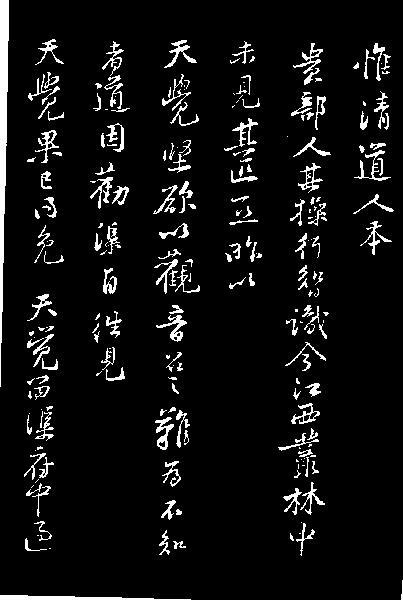 惟清道人本
貴部人其操行智識今江西叢林中
未見其匹亞昨以
天覺堅欲以觀音召之難為不知
者道因勸渠自往見
天覺果已得免 天覺留渠府中過